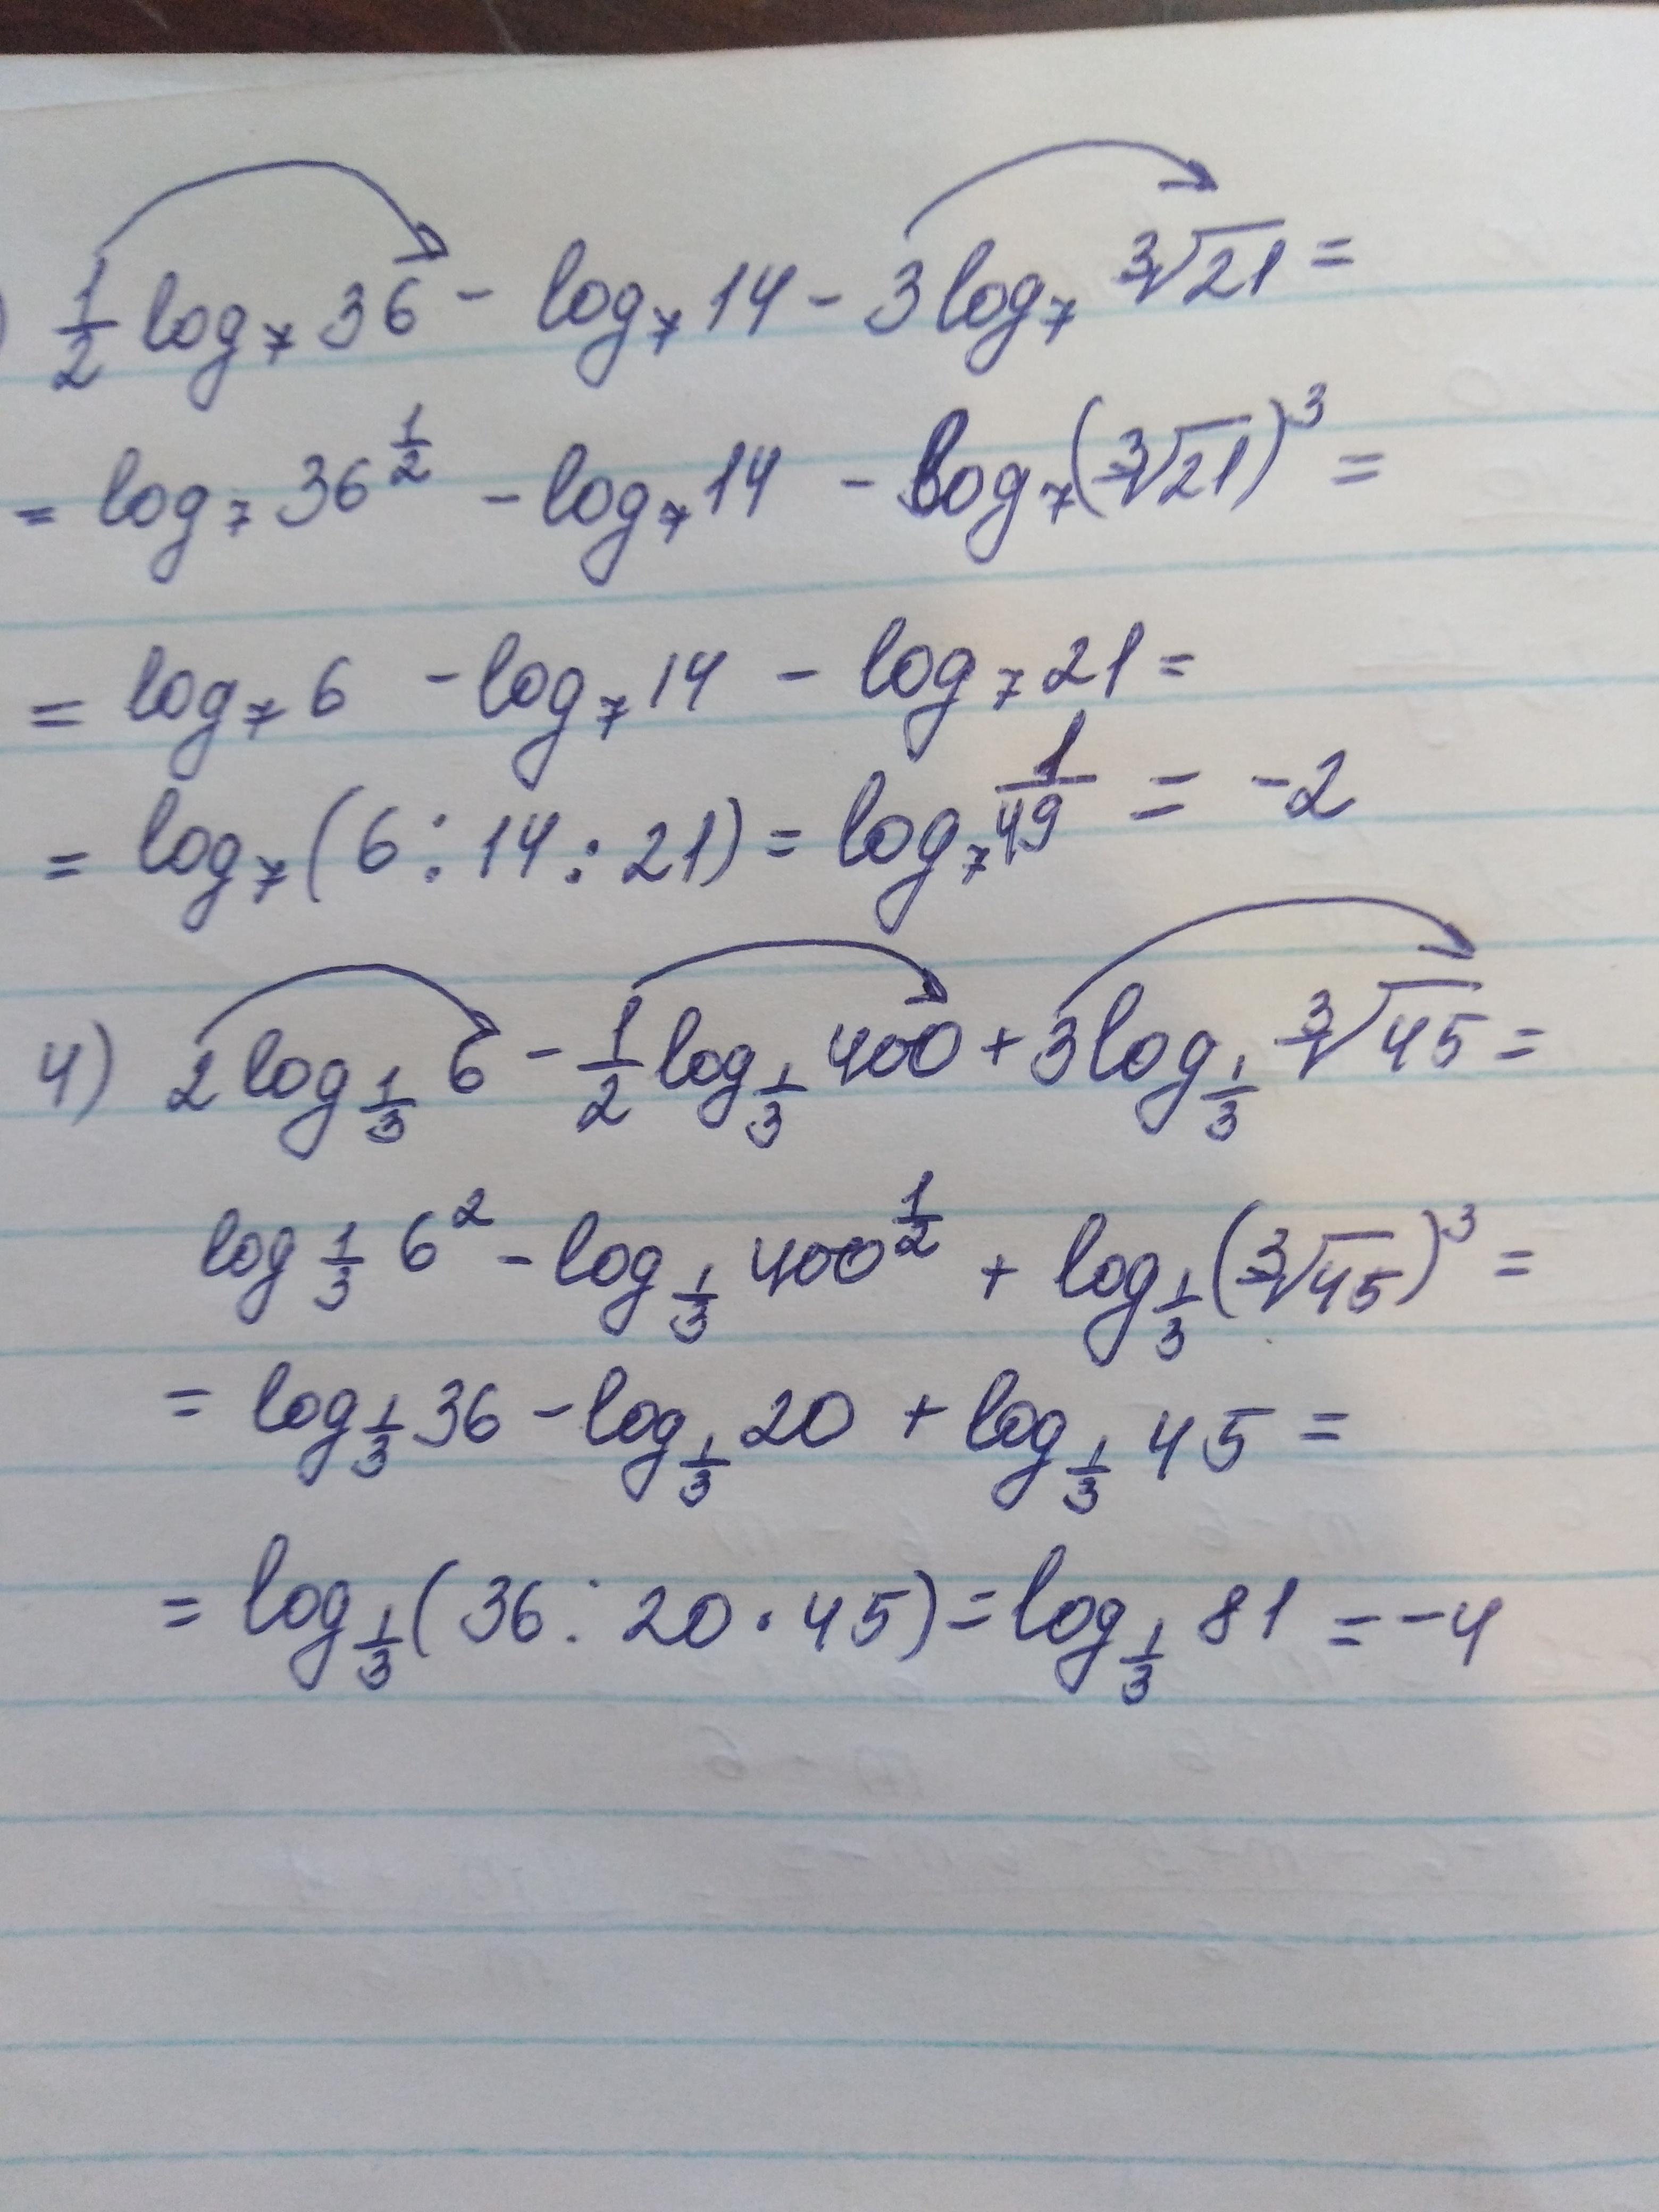 ) 1/2 log₇ 36 - log₇ 14 - 3 log₇ ∛21 =
= log₇ 36^(1/2) - log₇ 14 - log₇ (∛21)³ =
= log₇ 6 - log₇ 14 - log₇ 21 =
= log₇ (6 : 14 : 21) = log₇ 1/49 = -2
4) 2 log_(1/3) 6 - 1/2 log_(1/3) 400 + 3 log_(1/3) ∛45 =
log_(1/3) 6² - log_(1/3) 400^(1/2) + log_(1/3) (∛45)³ =
= log_(1/3) 36 - log_(1/3) 20 + log_(1/3) 45 =
= log_(1/3) (36 : 20 · 45) = log_(1/3) 81 = -4